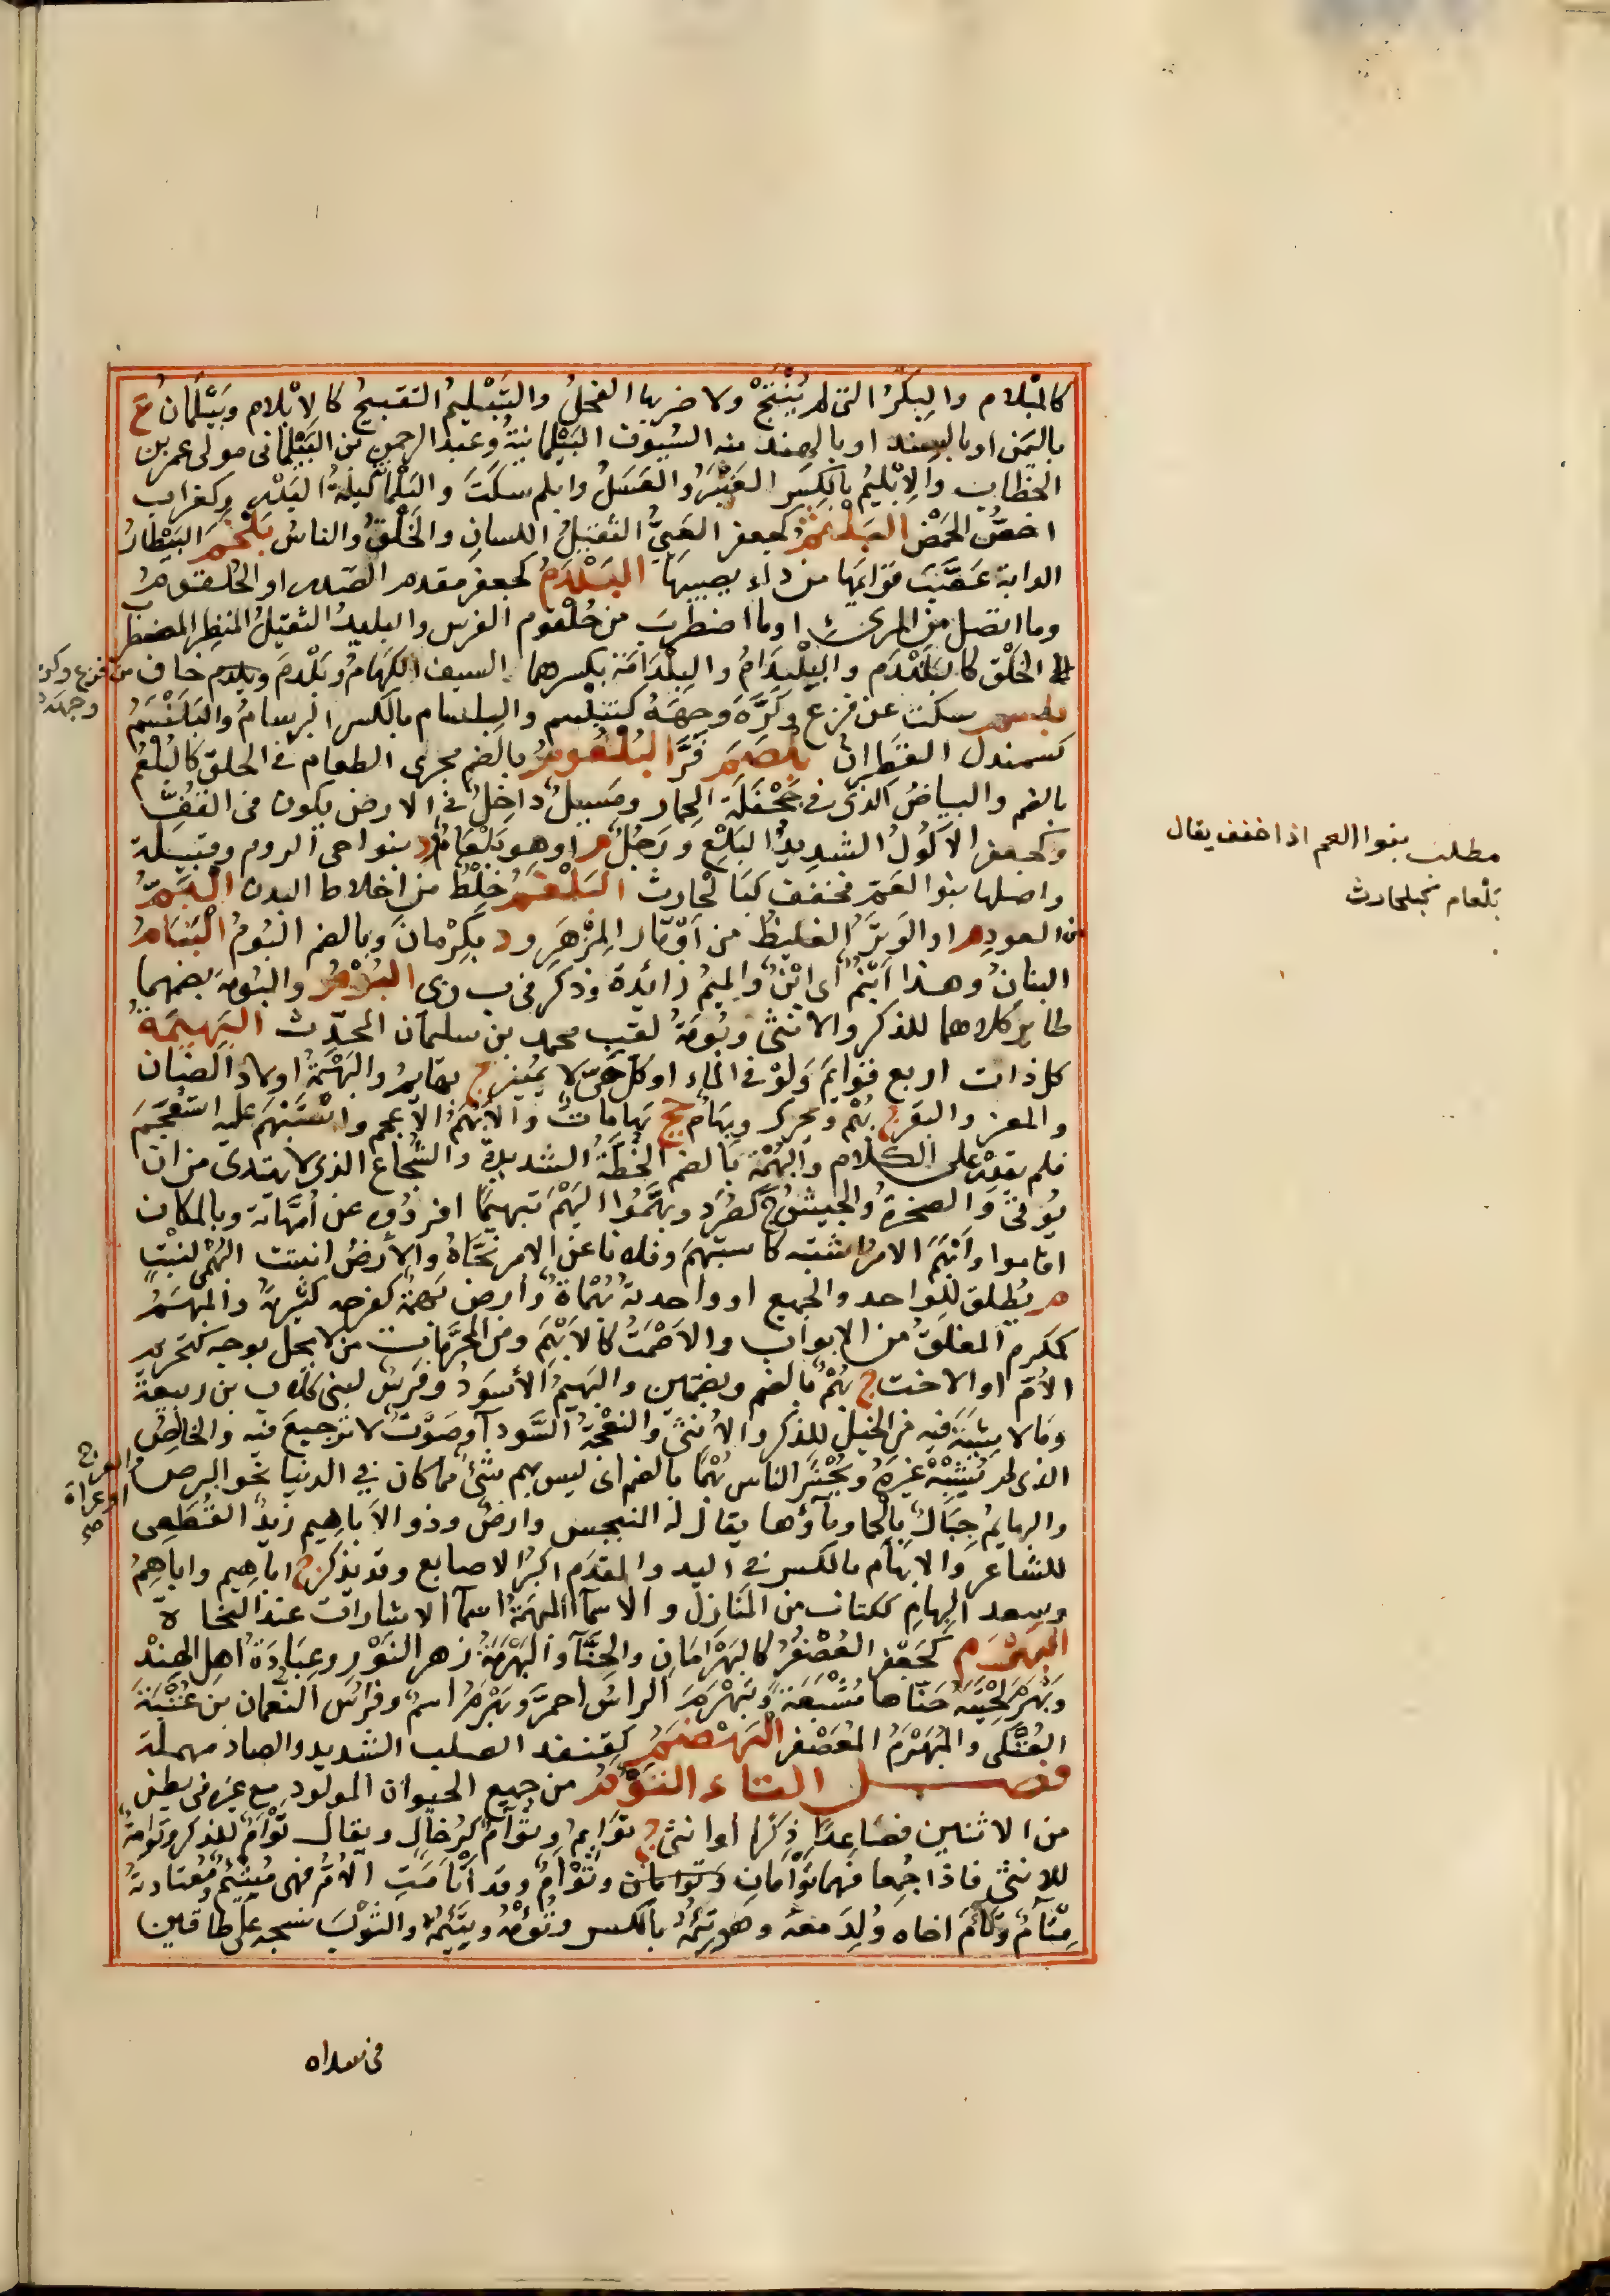 كالمبلام والبكر التى لم تنتج ولا ضربها الفحل والتبليم التقبيح كالابلام وبيلمان ع
باليمن او بالسند او بالهند منه السيوف البيلمانية وعبد الرحمن بن البيلمانى مولى عمر بن
الخطاب والابليم بالكسر العنبر والعسل وابلم سكت والبلماء ليلة البدر وكغراب
اخضر الحمض البلثم كجعفر العيى الثقيل اللسان والخلق والناس بلخم البيطار
الدابة عصب قوايمها من داء يصيبها البلدم كجعفر مقدم الصدر او الحلقوم
وما اتصل من المرئ او ما اضطرب من حلقوم الفرس والبليد الثقيل المنظر المضطرب
الخلق كالبلندم والبلدام والبلدامة بكسرهما السيف الكهام وبلدم وبلدم خاف من فزع وكره وجهه
بلسم سكت عن فزع وكره وجهه كتبلسم والبلسام بالكسر البرسام والبلنسم
كسمندل القطران بلصم فر البلعوم بالضم مجرى الطعام فى الحلق كالبلعم
بالضم والبياض الذى فى جحفلة الحمار ومسيل داخل فى الارض يكون فى القف
وكجعفر الاكول الشديد البلع ورجل م او هو بلعام ود بنواحى الروم وقبيلة
واصلها بنو العم فخفف كبا لحارث البلغم خلط من اخلاط البدن البم
من العود م او الوتر الغليظ من اوتار المزهر ود بكرمان وبالضم البوم البنام
البنان وهذا ابنم اى ابن والميم زائدة وذكر فى ب ن ى البوم والبومة بضمهما
طاير كلاهما للذكر والانثى وبومة لقب محمد بن سلمان المحدث البهيمة
كل ذات اربع قوايم ولو فى الماء او كل حى لا يميز ج بهايم والبهمة اولاد الضان
والمعز والبقر ج بهم ويحرك وبهام جج بهامات والابهم الاعجم واستبهم عليه استعجم
فلم يقدر على الكلام والبهمة بالضم الخطة الشديدة والشجاع الذى لا يهتدى من اين
يوتى والصخرة والجيش ج كصرد وبهموا البهم تبهيما افردوه عن امهاته وبالمكان
اقاموا وابهم الامر اشتبه كاستبهم وفلانا عن الامر نحاه والارض انبتت البهمى لنبت
م يطلق للواحد والجميع او واحدته بهماة وارض بهمة كفرحة كثيرته والمبهم
كمكرم المغلق من الابواب والاصمت كالابهم ومن المحرمات من لا يحل بوجه كتحريم
الام او الاخت ج بهم بالضم وبضمتين والبهيم الاسود وفرس لبنى كلاب بن ربيعة
وما لا شية فيه من الخيل للذكر والانثى والنعجة السوداء وصوت لا ترجيع فيه والخالص
الذى لم يشبه غيره ويحشر الناس بهما بالضم اى ليس بهم شئ مما كان فى الدنيا نحو البرص والعرج
او عراة صح
والبهايم جبال بالحمى وماؤها يقال له المنبجس وارض وذو الاباهيم زيد القطعى
للشاعر والابهام بالكسر فى اليد والقدم اكبر الاصابع وقد يذكر ج اباهيم واباهم
وسعد البهام ككتاب من المنازل والاسماء المبهمة اسماء الاشارات عند النحاة
البهرم كجعفر العصفر كالبهرمان والحناء والبهرمة زهر النور وعبادة اهل الهند
وبهرم لحيته حناها مشبعة وتبهرم الراس احمر وبهرم اسم وفرس النعمان بن عتبة
العتكى والمبهرم المعصفر البهصم كقنفذ الصلب الشديد والصاد مهملة
فصل التاء التوءم من جميع الحيوان المولود مع غيره فى بطن
من الاثنين فصاعدا ذكرا او انثى ج توايم وتوام كرخال ويقال توام للذكر وتوامة
للانثى فاذا جمعا فهما توامان وتوام وقد اتامت الام فهى متئم ومعتادته
متام وتاءم اخاه ولد معه وهو تئمه بالكسر وتؤمه وتئيمه والثوب نسجه على طاقين
مطلب بنوا العم اذا خفف يقال
بلعام كبلحارث
فى سداه